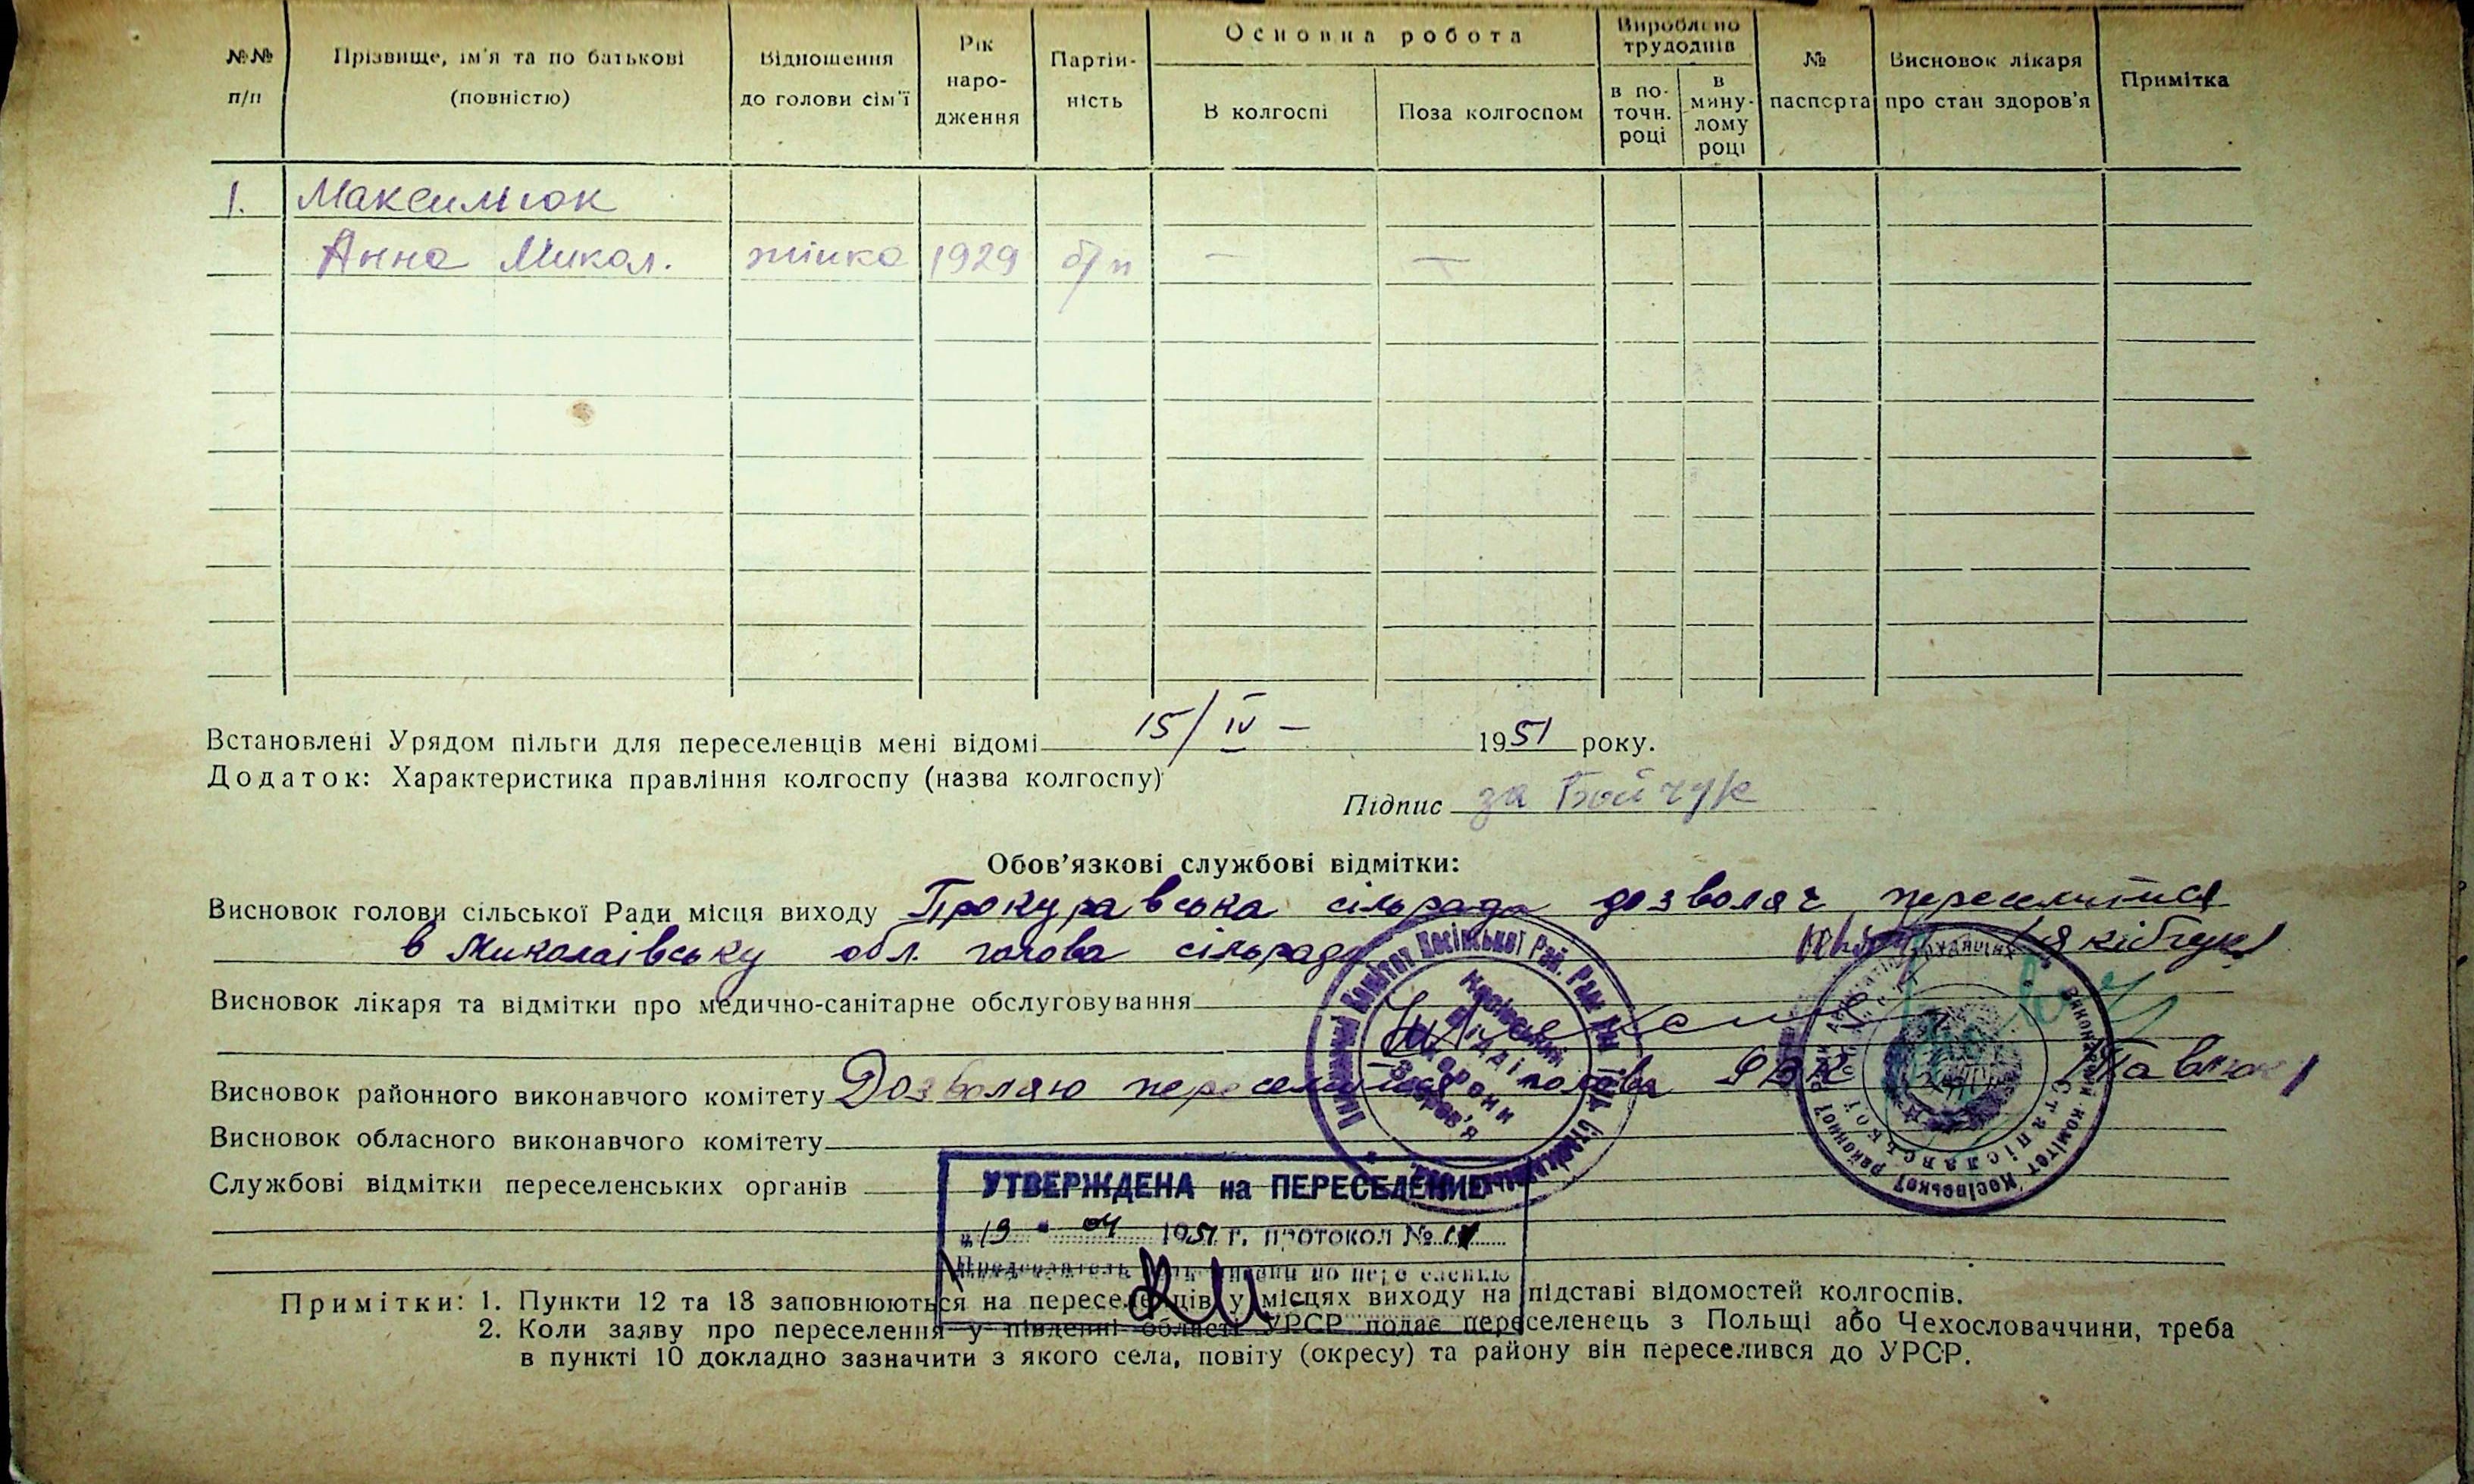 №№ п/п
Прізвище, ім'я та по батькові (повністю)
Відношення до голови сім'ї
Рік наро-дження
Партій-ність
Основна робота
В колгоспі
Поза колгоспом
Вироблено трудоднів
в по-точн. році
в мину-лому році
№ паспорта
Висновок лікаря про стан здоров'я
Примітка
1. Максимюк
Анна Микол. жінка 1929 б/п — —
Встановлені Урядом пільги для переселенців мені відомі 15/IV — 1951 року.
Додаток: Характеристика правління колгоспу (назва колгоспу)
Підпис за Бойчук
Обов'язкові службові відмітки:
Висновок голови сільської Ради місця виходу Прокуравська сільрада дозволяє переселитися
в Миколаївську обл. голова сільради
Висновок лікаря та відмітки про медично-санітарне обслуговування
Висновок районного виконавчого комітету Дозволяю переселитися голова РВК
Висновок обласного виконавчого комітету
Службові відмітки переселенських органів
УТВЕРЖДЕНА на ПЕРЕСЕЛЕНИЕ
„19" 04 1951 г. протокол №
Примітки: 1. Пункти 12 та 13 заповнюються на переселенців у місцях виходу на підставі відомостей колгоспів.
2. Коли заяву про переселення у південні області УРСР подає переселенець з Польщі або Чехословаччини, треба
в пункті 10 докладно зазначити з якого села, повіту (окресу) та району він переселився до УРСР.